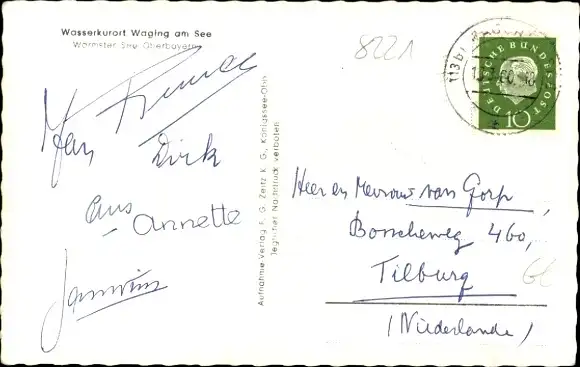 Wasserkurort Waging am See
Wärmster See Oberbayerns
8221
Dirk
Annette
Aufnahme-Verlag F. G. Zeitz K. G., Königssee-Obb.
Jeglicher Nachdruck verboten
(13b) WAGING
DEUTSCHE BUNDESPOST
10
Heer en Mevrouw van Gorp,
Bosscheweg 460,
Tilburg
(Niederlande)